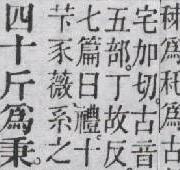 爲秅爲
宅加切。古音
五部。丁故反
七篇曰禮。十
苄豕薇系之
四十斤爲秉。